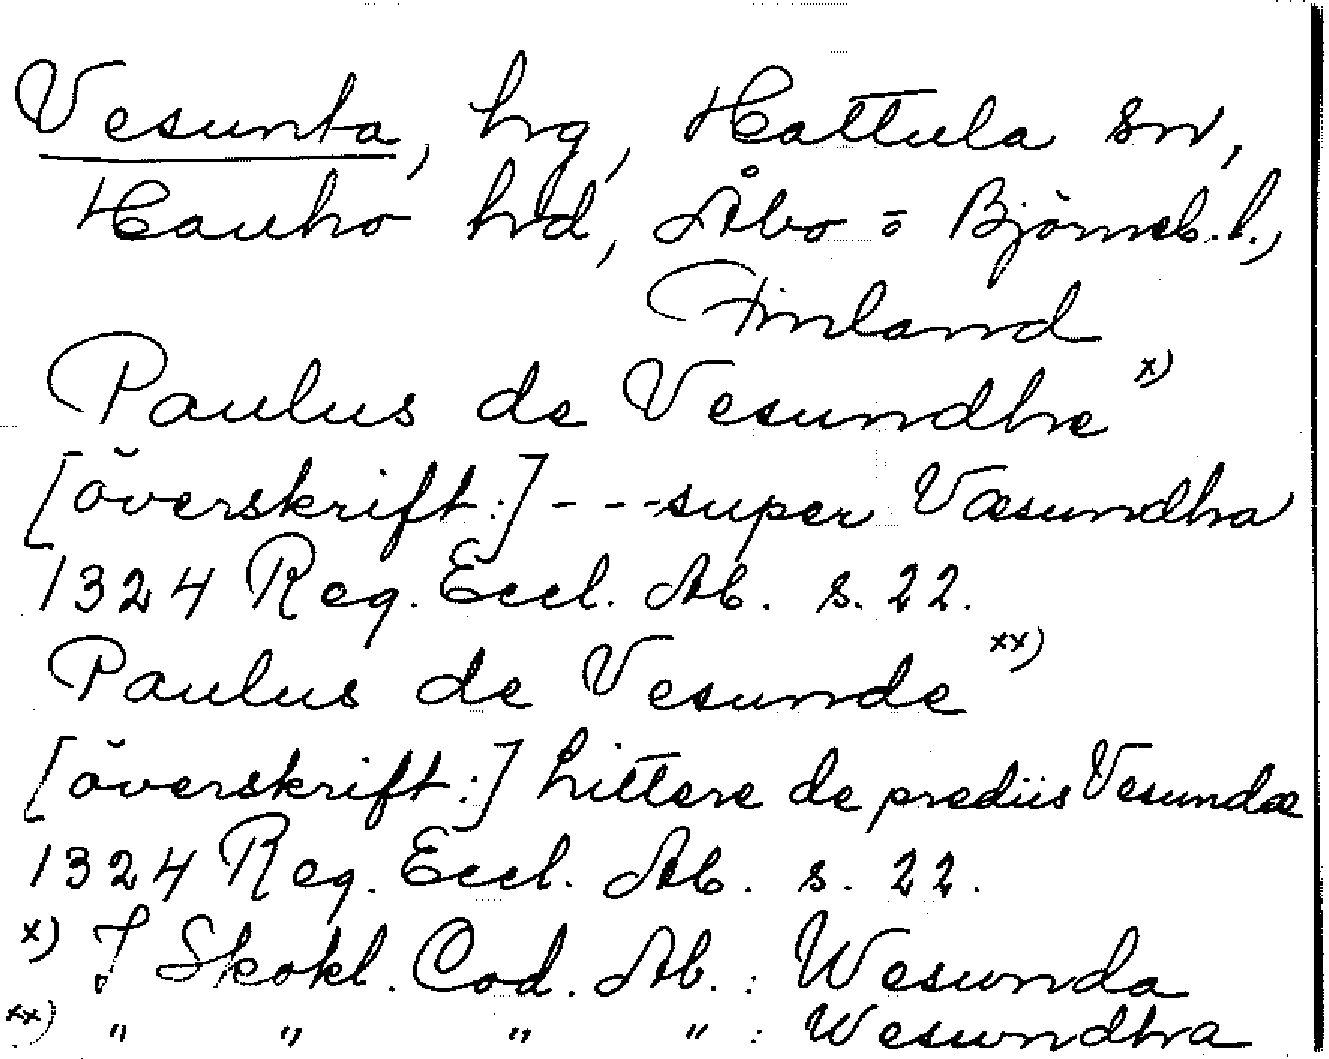 Vesunta, hrg, Hattula sn,
Hauho hrd, Åbo = Björneb. l.,
Finland
Paulus de Vesundhe x)
[överskrift:] - - - super Væsundha
1324 Reg. Eccl. Ab. s. 22.
Paulus de Vesunde xx)
[överskrift:] Littere de prediis Vesundæ
1324 Reg. Eccl. Ab. s. 22.
x) I Skokl. Cod. Ab. : Wesunda
xx) " " " " : Wesundhra